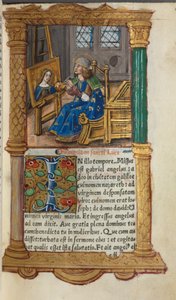 IN illo tempore. Missus
est gabriel angelus a
deo in civitatem galilee
cui nomen nazareth: ad
virginem desponsatam
viro cui nomen erat io
seph: de domo david: et
nomen virginis maria. Et ingressus angelus
ad eam dixit. Ave gratia plena dominus
tecum benedicta tu in mulieribus. Que cum au
disset turbata est in sermone eius: et cogita
bat qualis esset ista salutatio. Et ait ange